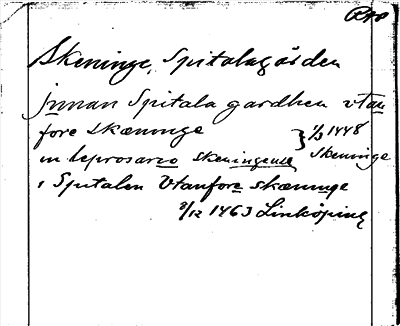 Skeninge, Spitalagården
jnnan Spitala gardhen vtan
fore skæninge } 1/3 1448
in leprosario skeningense Skeninge
i Spitalen vtanfore skæninge
8/12 1463 Linköping